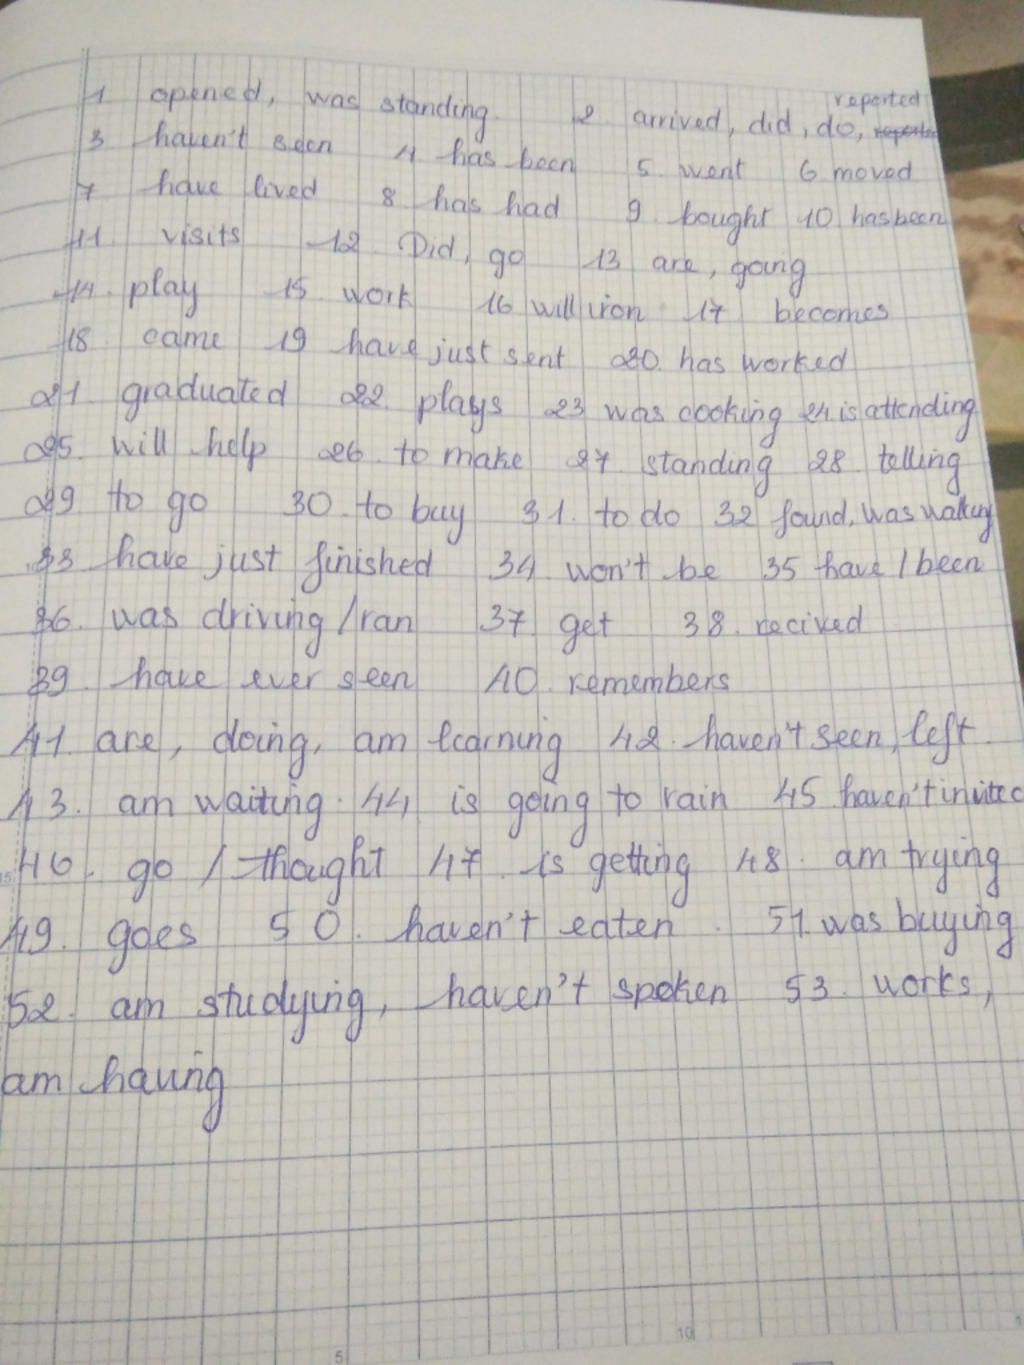 reported
1 opened, was standing 2 arrived, did, do, reported
3 haven't seen 4 has been 5. went 6 moved
7 have lived 8 has had 9. bought 10 has been
11 visits 12. Did, go 13 are, going
14. play 15. work 16 will iron 17 becomes
18 came 19 have just sent 20. has worked
21. graduated 22. plays 23 was cooking 24. is attending
25. will help 26. to make 27 standing 28. telling
29 to go 30. to buy 31. to do 32 found, was walking
33 have just finished 34 won't be 35 have / been
36. was driving / ran 37. get 38. recived
39. have ever seen 40. remembers
41 are, doing, am learning 42. haven't seen, left.
43. am waiting. 44 is going to rain 45 haven't invited
46. go / thought 47. is getting 48. am trying
49. goes 50. haven't eaten. 51. was buying
52. am studying, haven't spoken 53. works,
am having
5
10
15